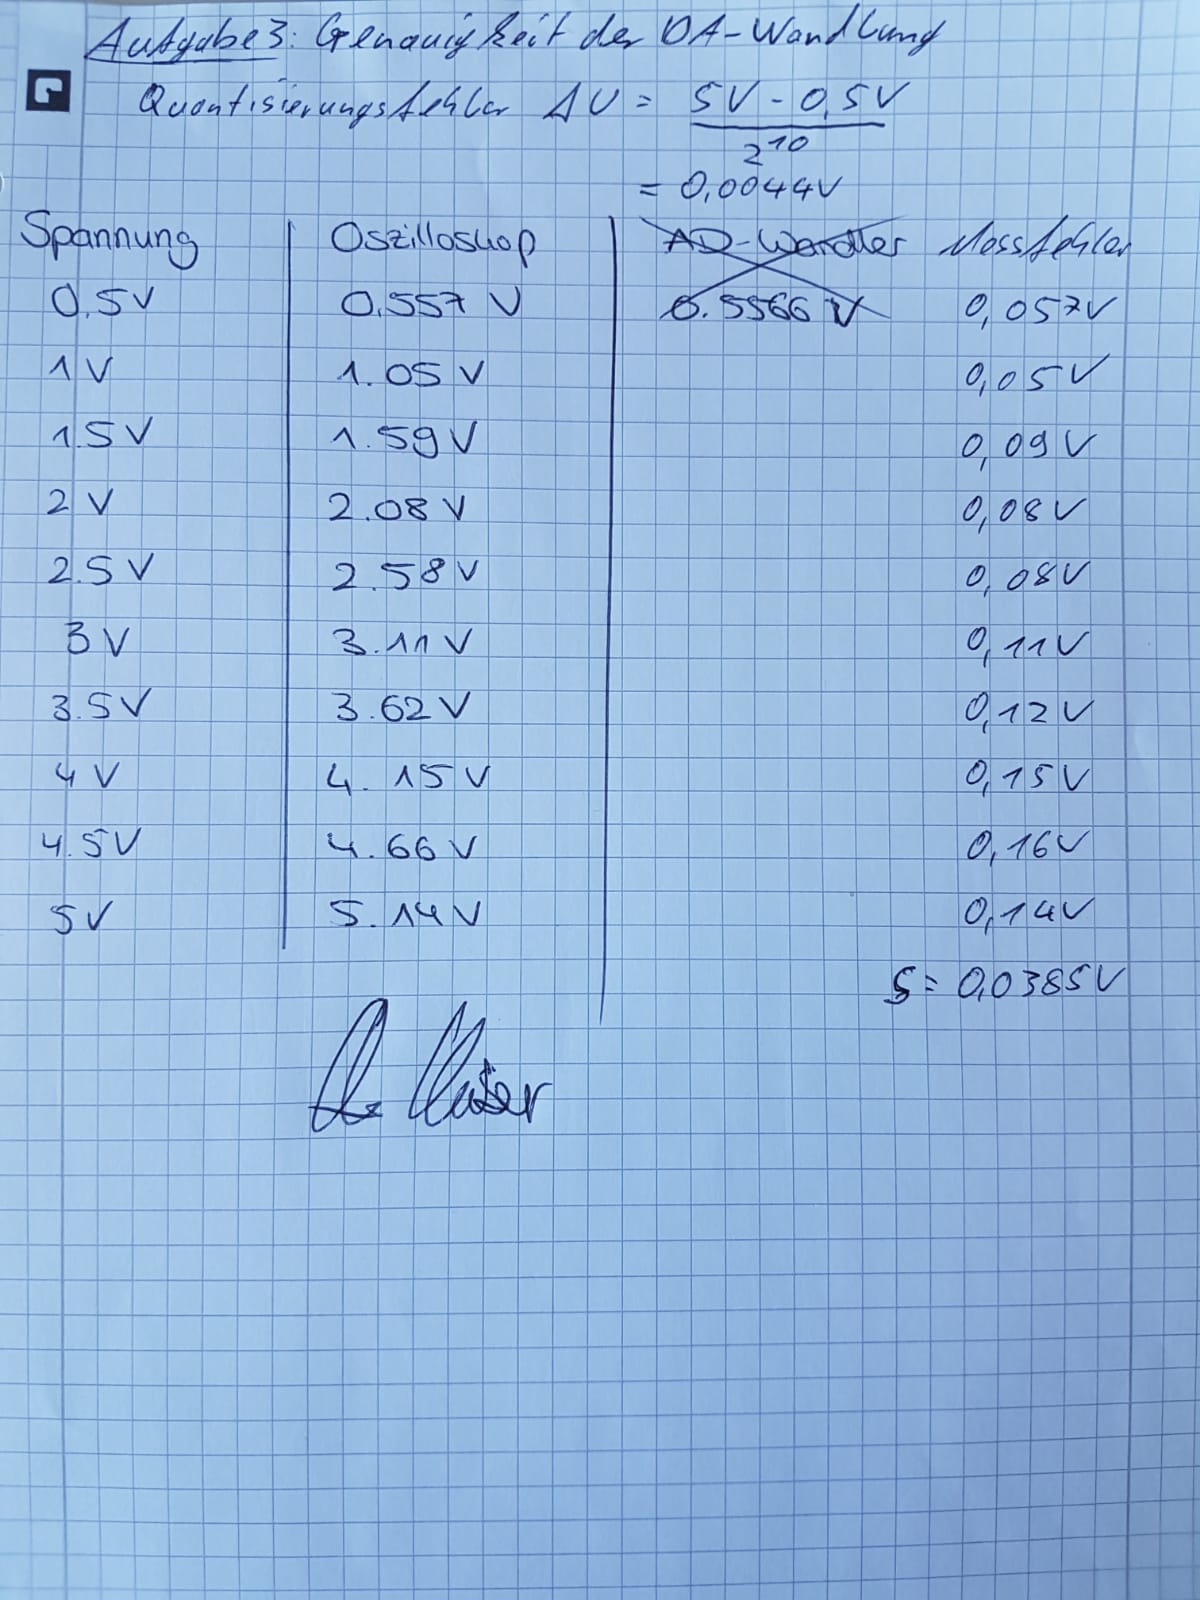 Aufgabe 3: Genauigkeit der DA-Wandlung
Quantisierungsfehler ΔU = 5V - 0,5V
2^10
= 0,0044V
Spannung Oszilloskop AD-Wandler Messfehler
0,5V 0.557 V 0.5566 V 0,057V
1V 1.05 V 0,05V
1.5V 1.59V 0,09V
2V 2.08V 0,08V
2.5V 2.58V 0,08V
3V 3.11V 0,11V
3.5V 3.62V 0,12V
4V 4.15V 0,15V
4.5V 4.66V 0,16V
5V 5.14V 0,14V
S = 0,0385V